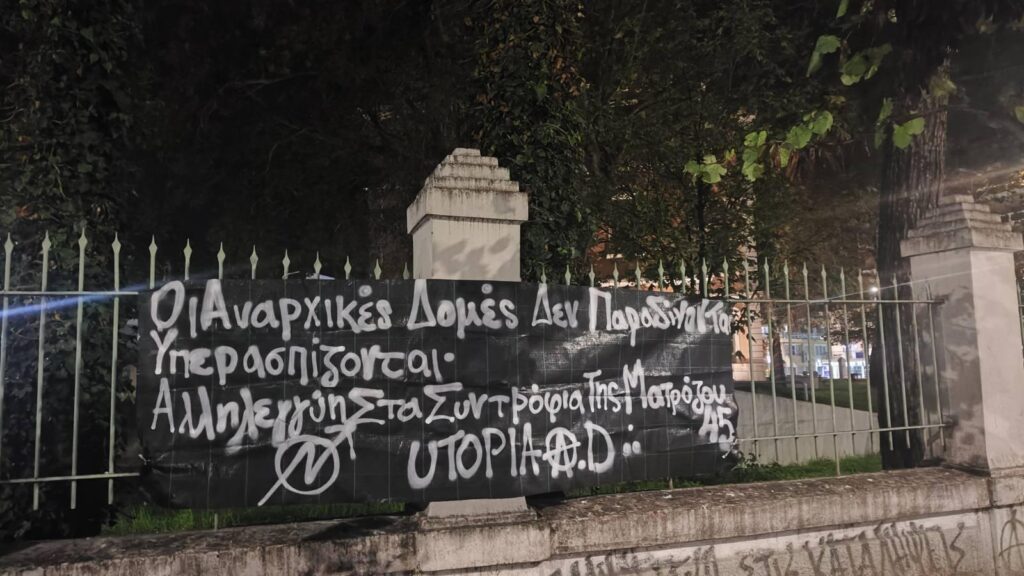 Οι Αναρχικές Δομές Δεν Παραδίνονται
Υπερασπίζονται·
Αλληλεγγύη Στα Συντρόφια Της Ματρόζου 45
UTOPIA A.D
ΣΤΙΣ ΚΑΤΑΛΗΨΕΙΣ